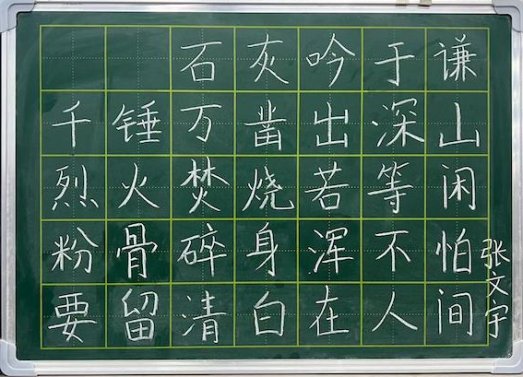 石灰吟于谦
千锤万凿出深山
烈火焚烧若等闲
粉骨碎身浑不怕
要留清白在人间
张文宇